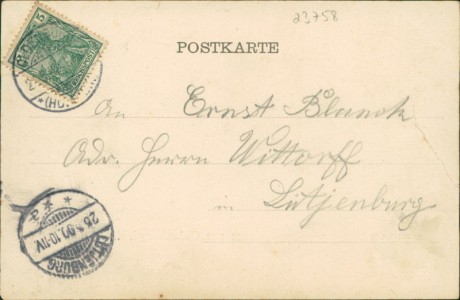 23758
POSTKARTE
An Ernst Blunck
Adr. Herrn Wittorff
in Lütjenburg
LÜTJENBURG